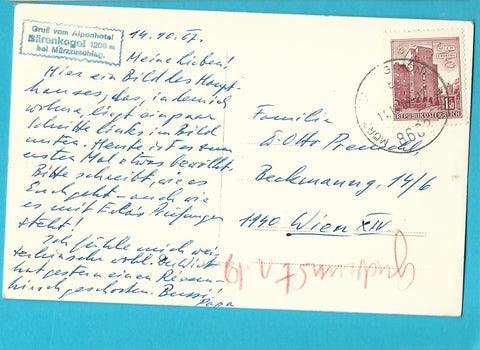 Gruß vom Alpenhotel
Bärenkogel 1200 m
bei Mürzzuschlag.
14.10.67.
Meine Lieben!
Hier ein Bild des Haupt-
hauses, das, in dem ich
wohne, liegt ein paar
Schritte links im Bild
unten. Heute ist es zum
ersten Mal etwas bewölkt.
Bitte schreibt, wie es
Euch geht – auch wie
es mit Prüfungen
steht!
Ich fühle mich wei-
terhin sehr wohl. Der Wirt
hat gestern einen Riesen-
hirsch geschossen. Bussi!
Papa
Familie
Otto
Beckmanng. 14/6
1140 Wien XIV.
WIEN
ERDBERG
REPUBLIK ÖSTERREICH